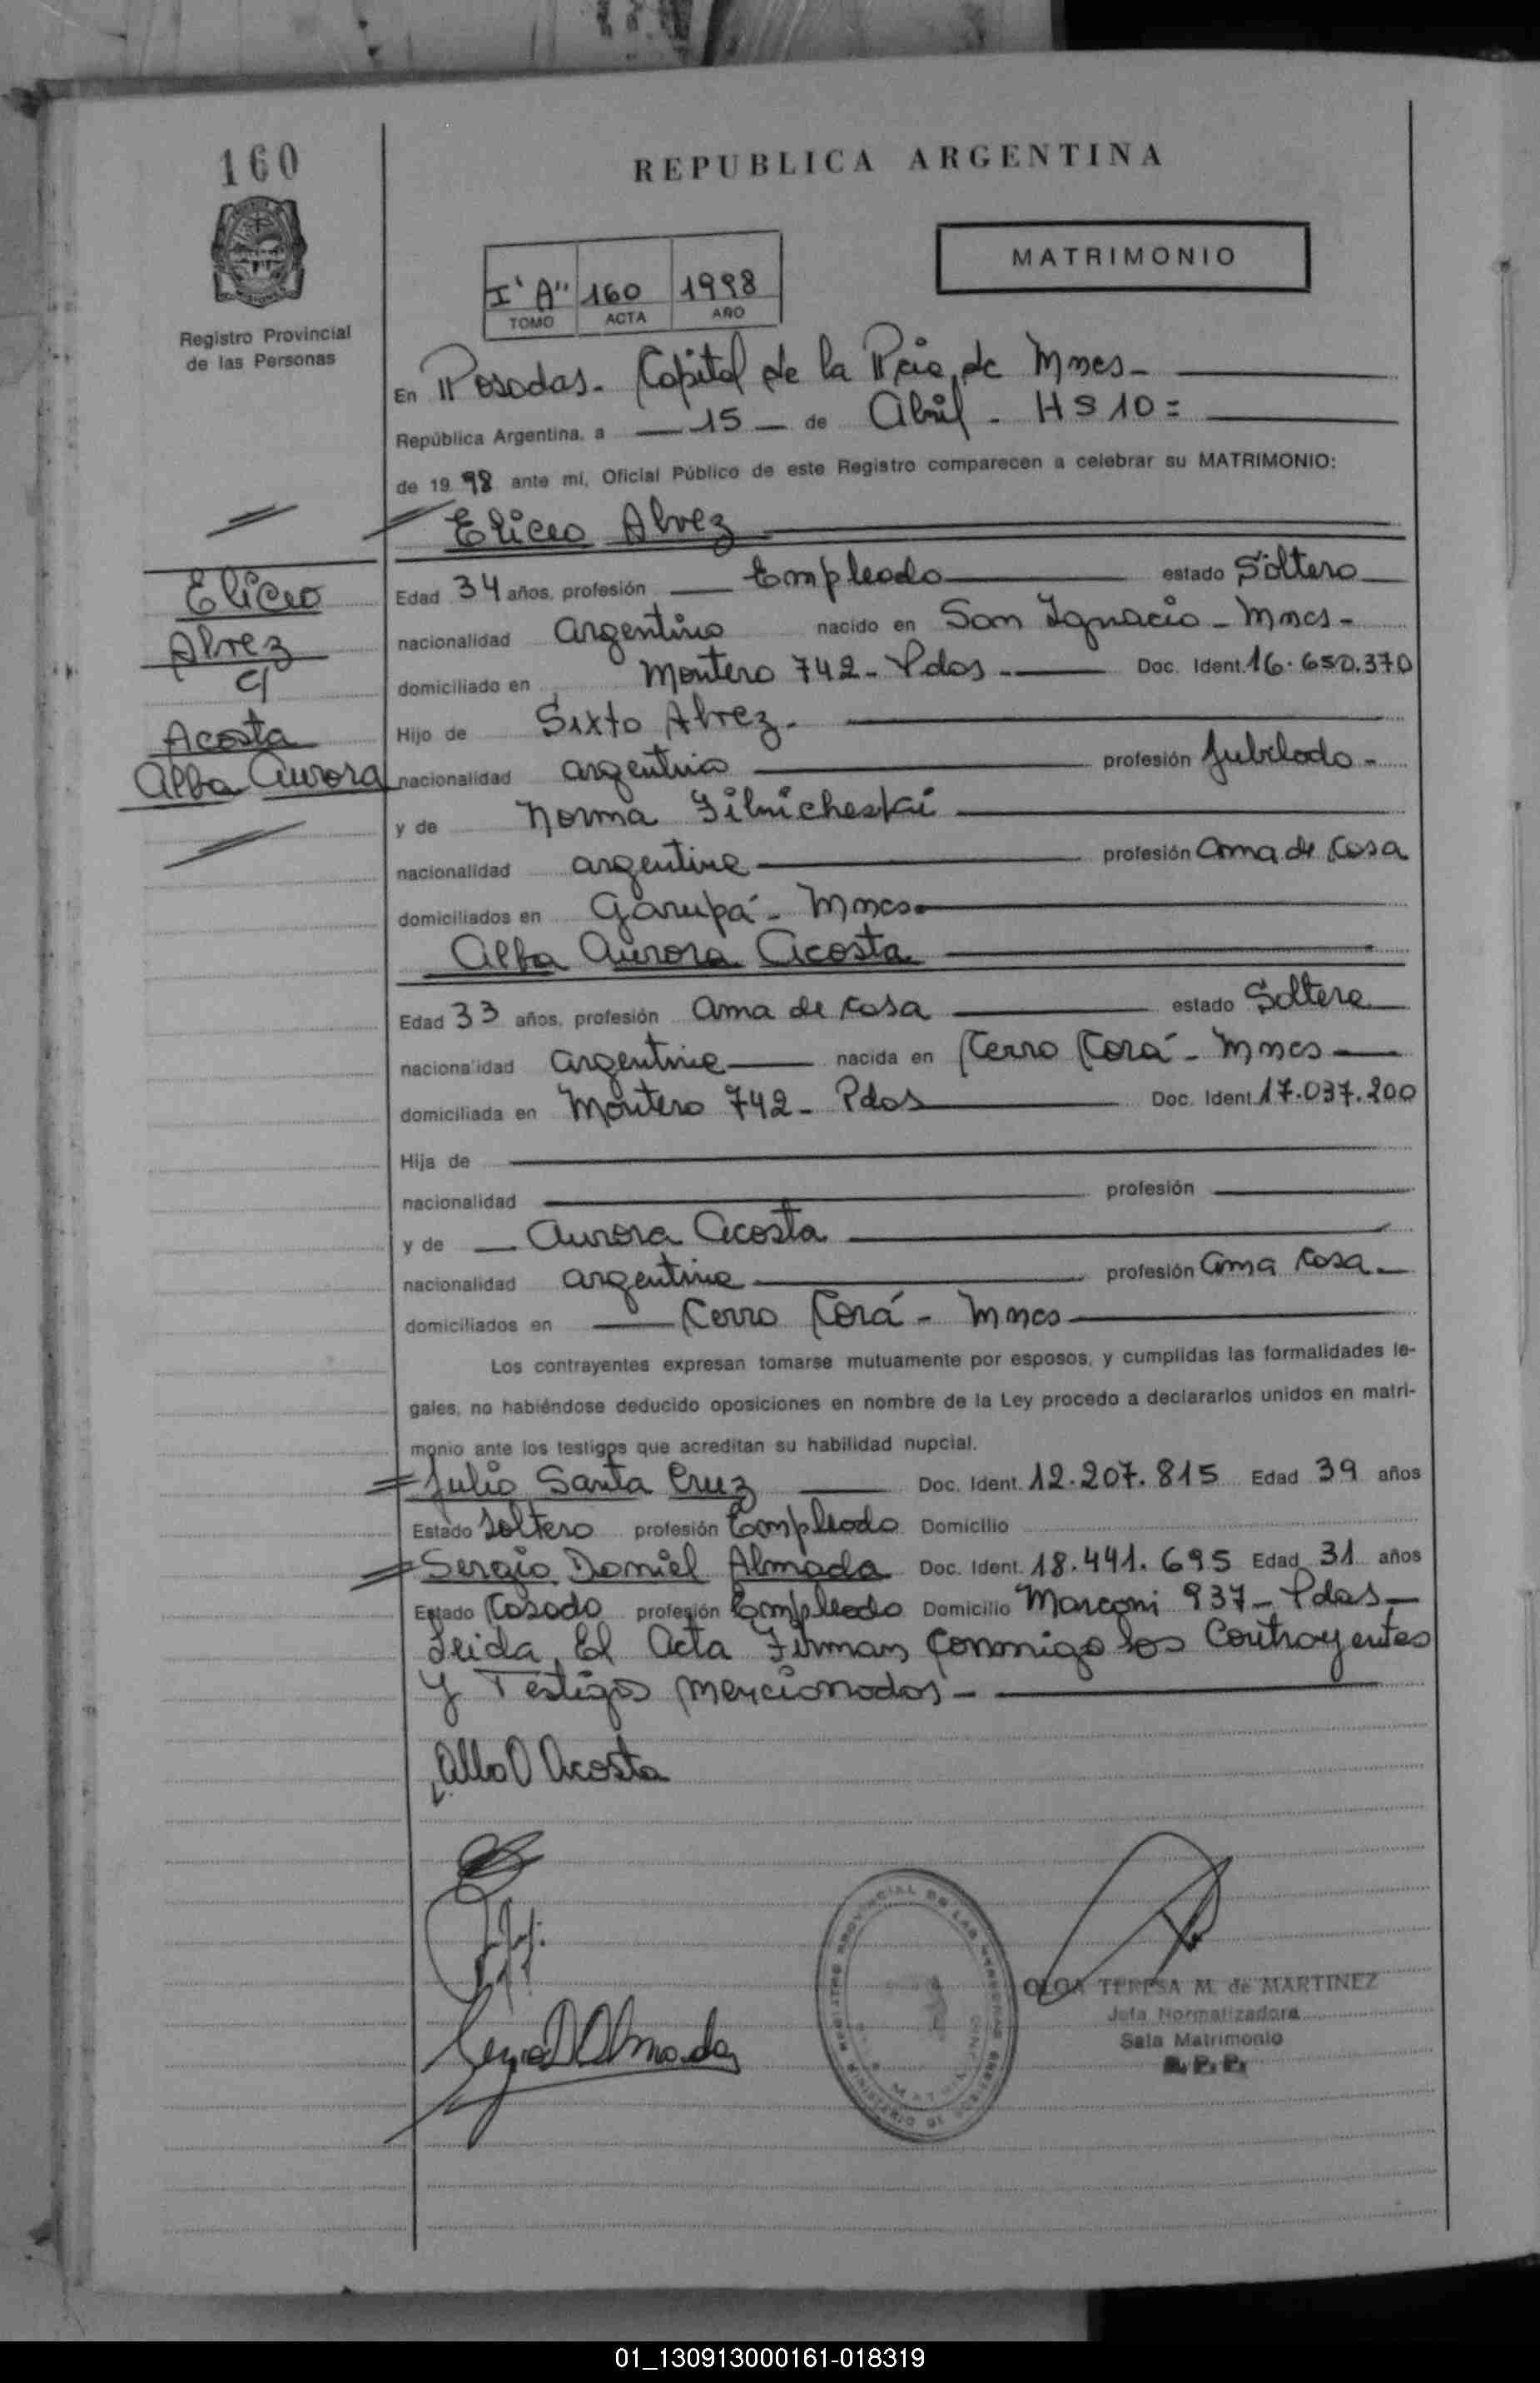 160
REPUBLICA ARGENTINA
MATRIMONIO
I "A" 160 1998
TOMO ACTA AÑO
Registro Provincial
de las Personas
En Posadas - Capital de la Pcia. de Mnes -
República Argentina, a 15 de Abril - HS 10 =
de 19 98 ante mí, Oficial Público de este Registro comparecen a celebrar su MATRIMONIO:
Eliceo Alvez
Eliceo
Alvez
c/
Acosta
Alba Aurora
Edad 34 años, profesión Empleado estado Soltero
nacionalidad Argentino nacido en San Ignacio - Mnes -
domiciliado en Montero 742 - Pdas - Doc. Ident. 16.650.370
Hijo de Sixto Alvez -
nacionalidad argentino profesión Jubilado -
y de Norma Filnicheski
nacionalidad argentina profesión Ama de Casa
domiciliados en Garupá - Mnes
Alba Aurora Acosta
Edad 33 años, profesión Ama de casa estado Soltera
nacionalidad Argentina nacida en Cerro Corá - Mnes
domiciliada en Montero 742 - Pdas Doc. Ident. 17.037.200
Hija de
nacionalidad profesión
y de Aurora Acosta
nacionalidad argentina profesión Ama casa -
domiciliados en Cerro Corá - Mnes
Los contrayentes expresan tomarse mutuamente por esposos, y cumplidas las formalidades le-
gales, no habiéndose deducido oposiciones en nombre de la Ley procedo a declararlos unidos en matri-
monio ante los testigos que acreditan su habilidad nupcial.
Julio Santa Cruz Doc. Ident. 12.207.815 Edad 39 años
Estado Soltero profesión Empleado Domicilio
Sergio Daniel Almada Doc. Ident. 18.441.695 Edad 31 años
Estado Casado profesión Empleado Domicilio Marconi 937 - Pdas -
Leida El Acta Firman Conmigo los Contrayentes
y Testigos mencionados -
Alba Acosta
Sergio D Almada
OLGA TERESA M. de MARTINEZ
Jefa Normalizadora
Sala Matrimonio
R.P.P.
01_130913000161-018319